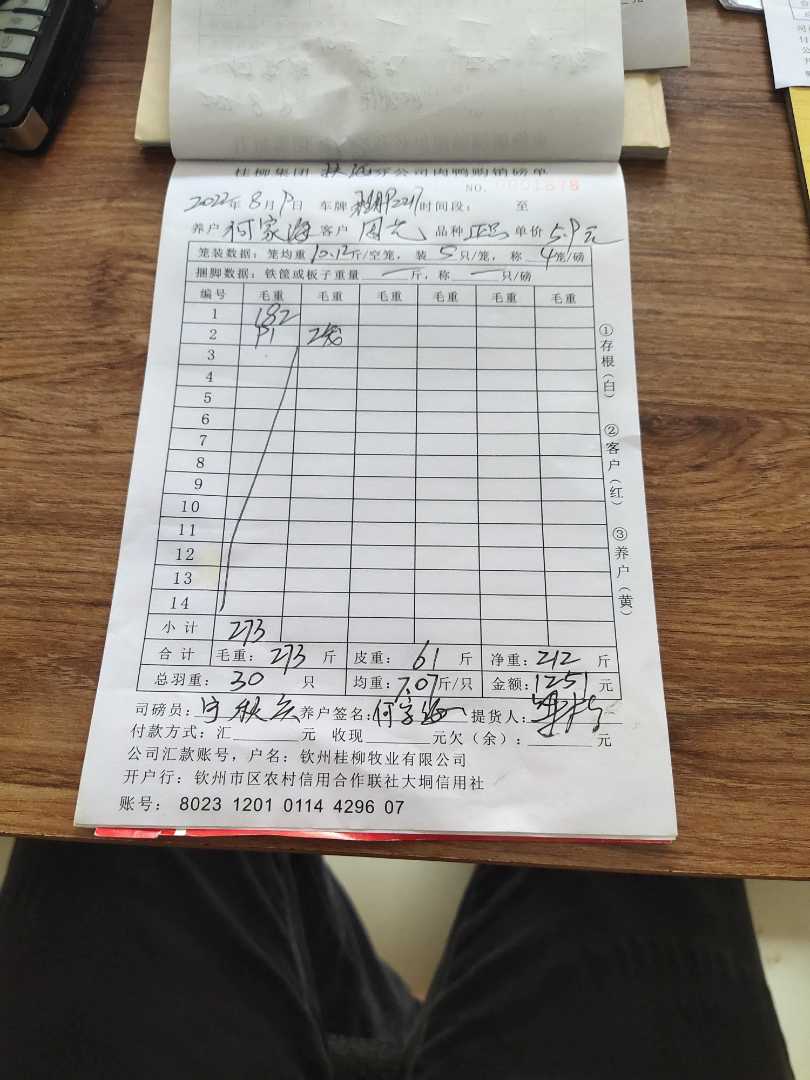 桂柳集团 分公司肉鸭购销磅单
NO. 0001878
2022年 8月 9日 车牌 2217 时间段： 至
养户 何家海 客户 周光 品种 正品 单价 5.9元
笼装数据：笼均重 10.12 斤/空笼，装 5 只/笼，称 4 笼/磅
捆脚数据：铁筐或板子重量 一 斤，称 一 只/磅
编号 毛重 毛重 毛重 毛重 毛重 毛重
1 182
2 91
3
4
5
6
7
8
9
10
11
12
13
14
小计 273
合计 毛重：273 斤 皮重：61 斤 净重：212 斤
总羽重：30 只 均重：7.07 斤/只 金额：1251 元
司磅员： 养户签名：何家海 提货人：
付款方式：汇 元 收现 元欠（余）： 元
公司汇款账号，户名：钦州桂柳牧业有限公司
开户行：钦州市区农村信用合作联社大垌信用社
账号： 8023 1201 0114 4296 07
①存根（白）
②客户（红）
③养户（黄）